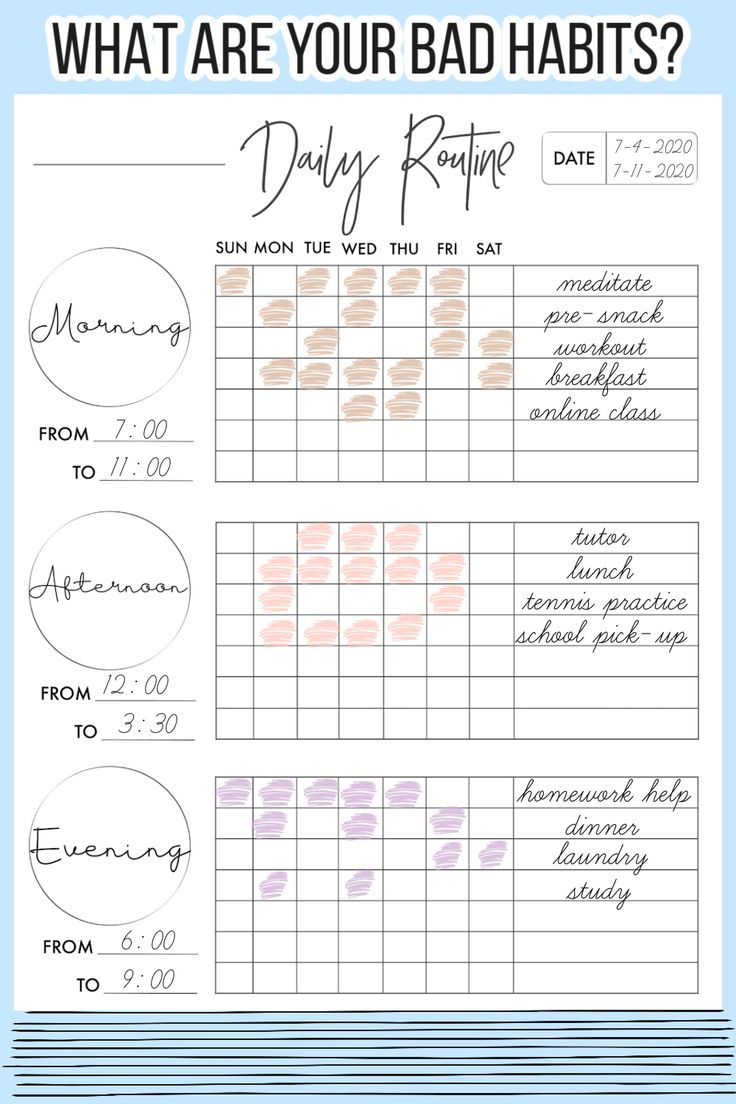 WHAT ARE YOUR BAD HABITS?
Daily Routine
DATE 7-4-2020
7-11-2020
SUN MON TUE WED THU FRI SAT
Morning
meditate
pre-snack
workout
breakfast
online class
FROM 7:00
TO 11:00
Afternoon
tutor
lunch
tennis practice
school pick-up
FROM 12:00
TO 3:30
Evening
homework help
dinner
laundry
study
FROM 6:00
TO 9:00